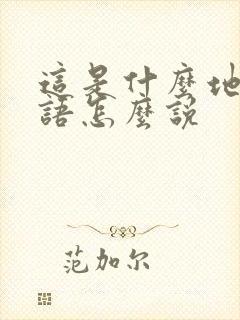 這是什麼地
語怎麼說
范加尔